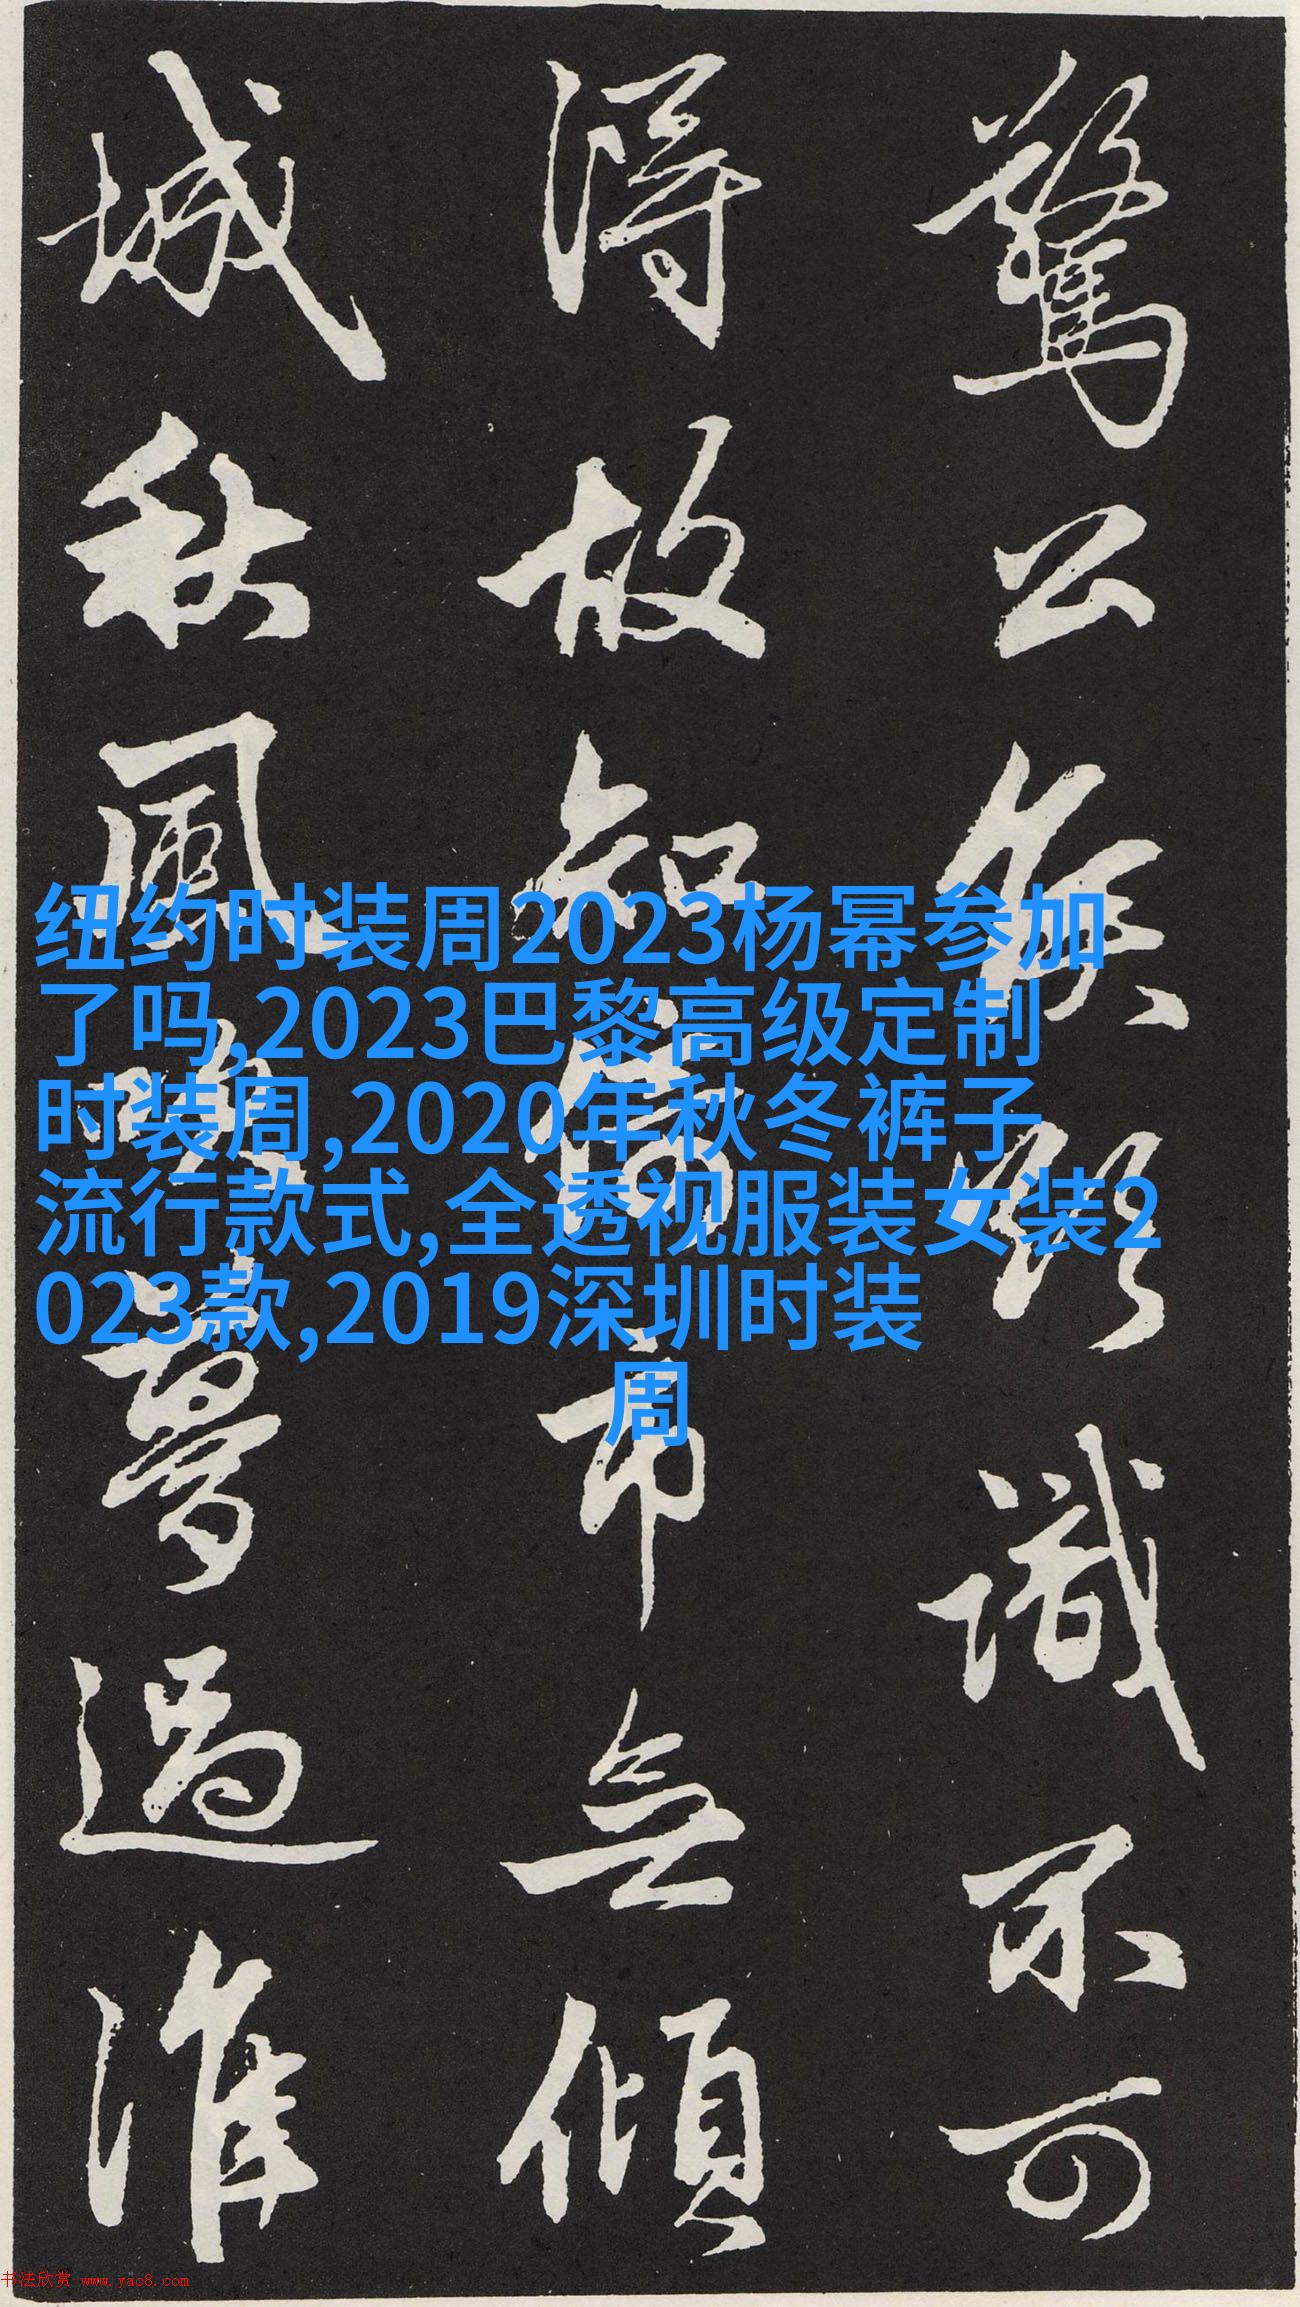 驚公侯欲識不可
得故知
市無傾
城秋風
夢過淮
纽约时装周2023杨幂参加
了吗,2023巴黎高级定制
时装周,2020年秋冬裤子
流行款式,全透视服装女装2
023款,2019深圳时装
周
书法欣赏 www.yac8.com